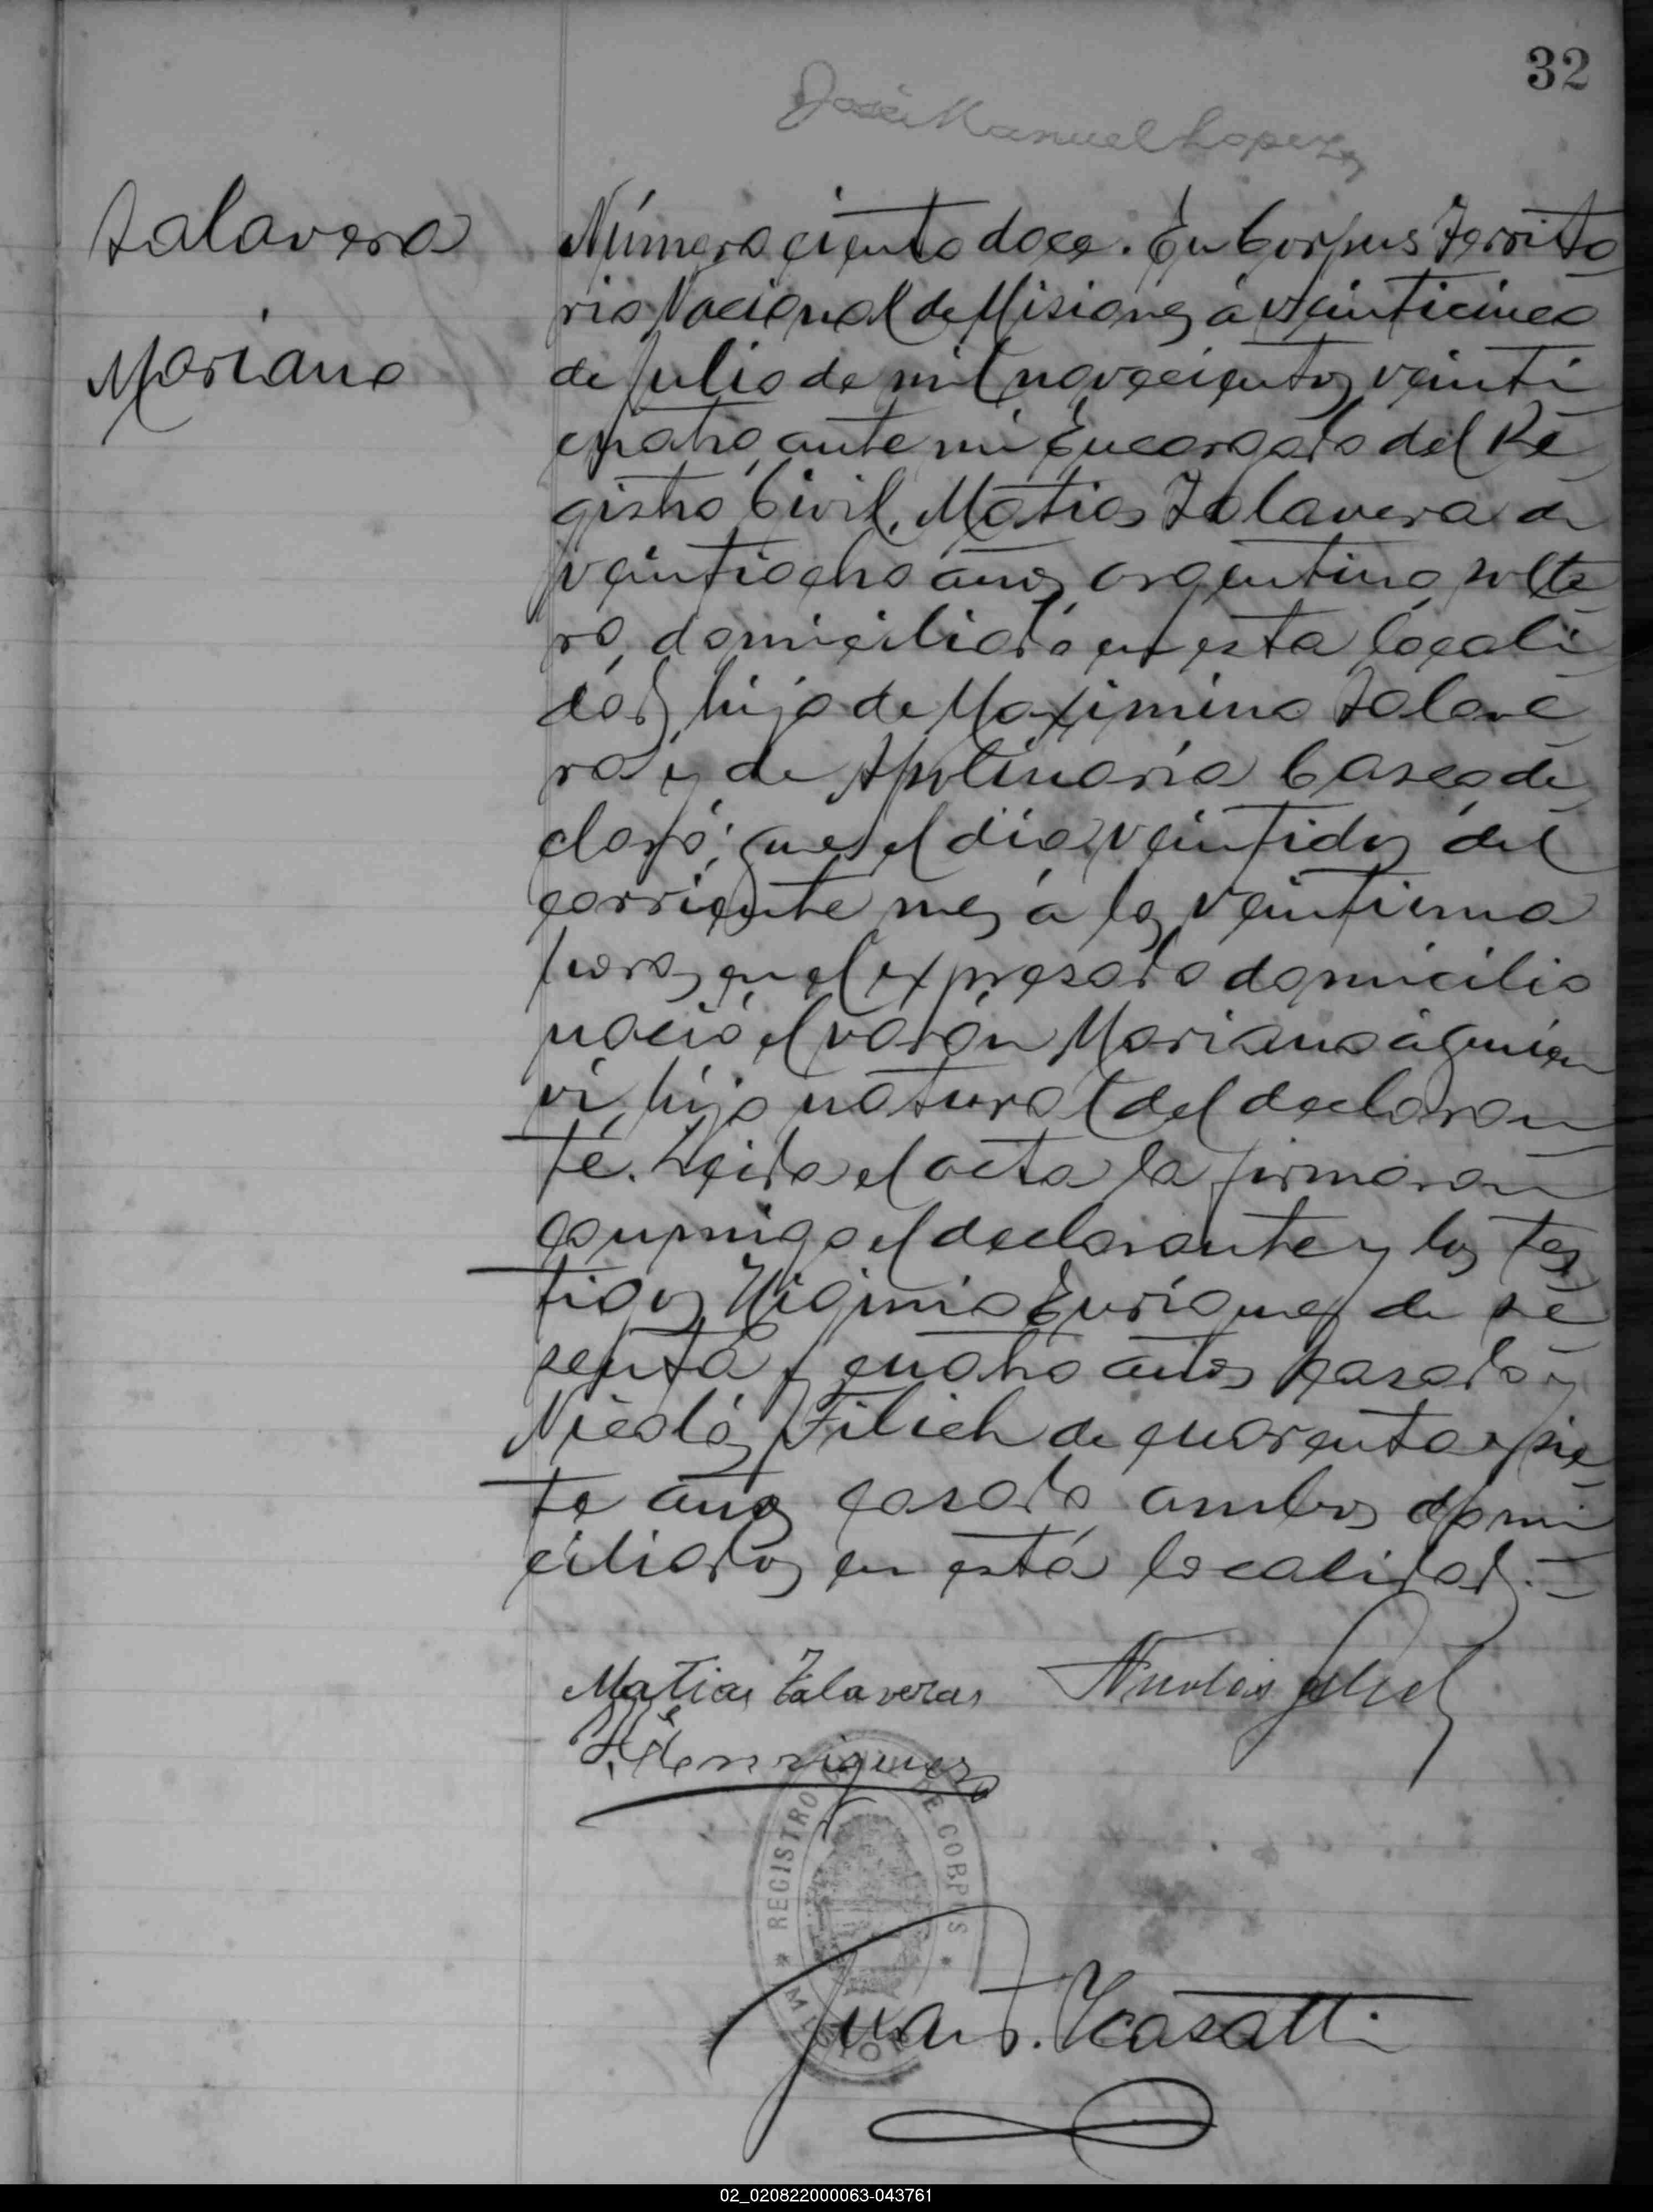 32
José Manuel Lopez
Talavera
Mariano
Número ciento doce. En Corpus Territo
rio Nacional de Misiones á veinticinco
de Julio de mil novecientos veinti
cuatro, ante mi Encargado del Re
gistro Civil, Matias Talavera de
veintiocho años, argentino, solte
ro, domiciliado en esta locali
dad, hijo de Maximino Talave
ra y de Apolinaria de
claró: que el dia veintidos del
corriente mes á las veintiuna
horas en el expresado domicilio
nació el varón Mariano á quien
vi, hijo natural del declaran
te. Leida el acta la firmaron
conmigo el declarante y los tes
tigos Higinio Enriques de se
senta y cuatro años casado y
Nicolás Filich de cuarenta y sie
te años casado ambos domi
ciliados en esta localidad.
Matias Talavera Nicolas
H. Henriquez
REGISTRO DE CORPUS
* MISIONES *
Juan
02_020822000063-043761